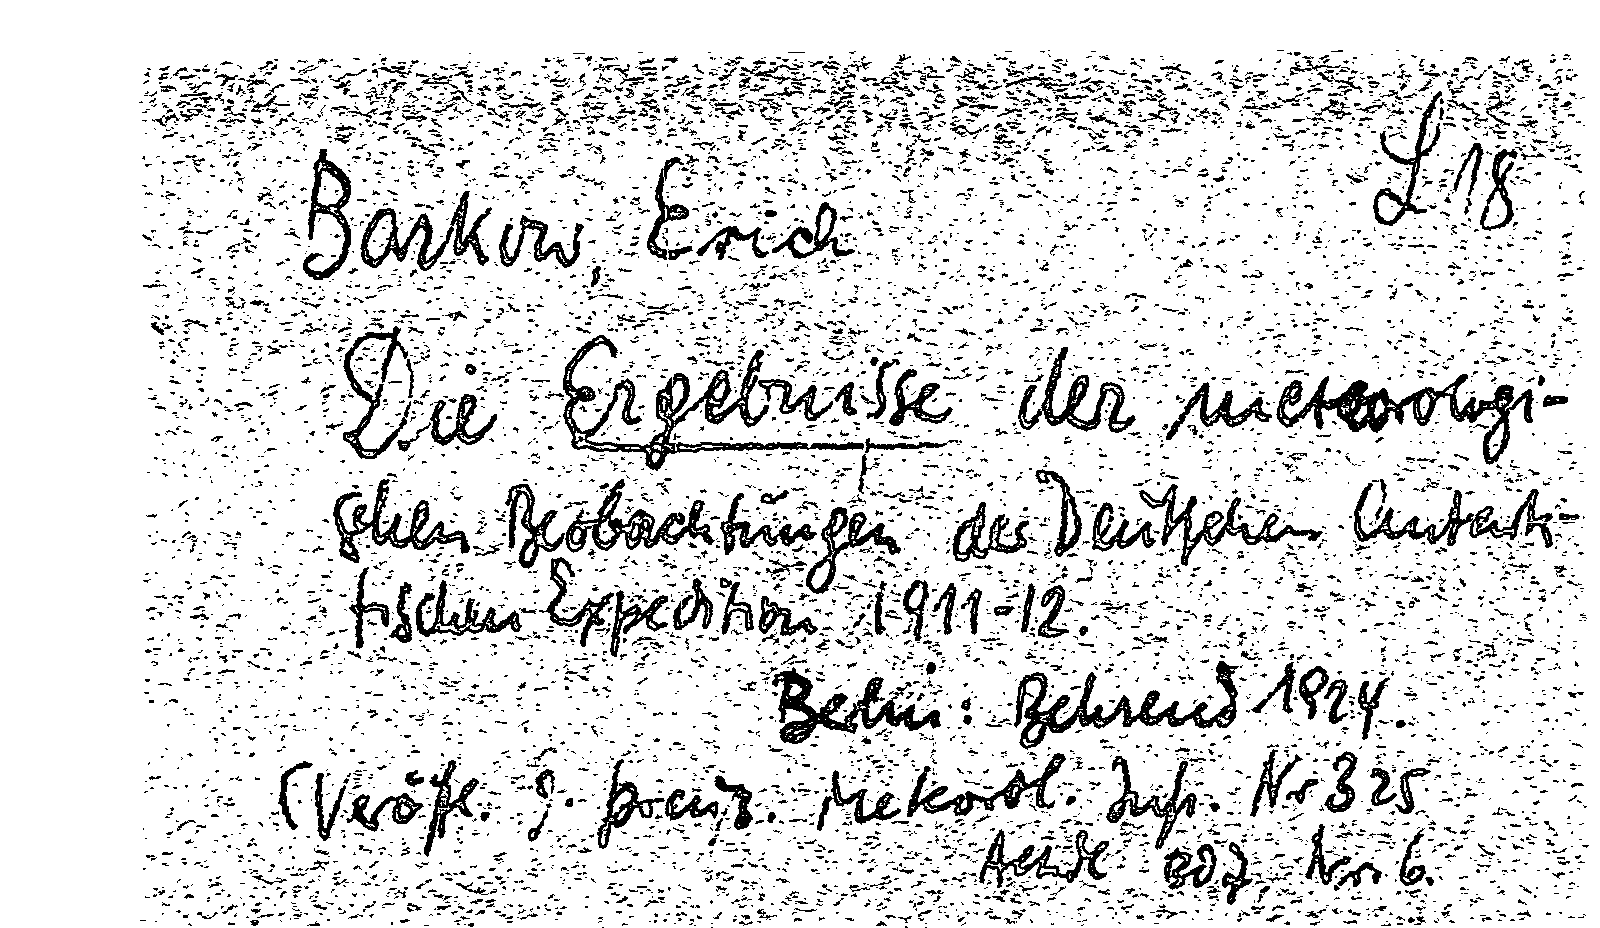 L 18
Barkow, Erich
Die Ergebnisse der meteorologi-
schen Beobachtungen der Deutschen Antark-
tischen Expedition 1911-12.
Berlin: Behrend 1924.
(Veröff. d. preuß. Meteorol. Inst. Nr 325
Bd 7, Nr. 6.